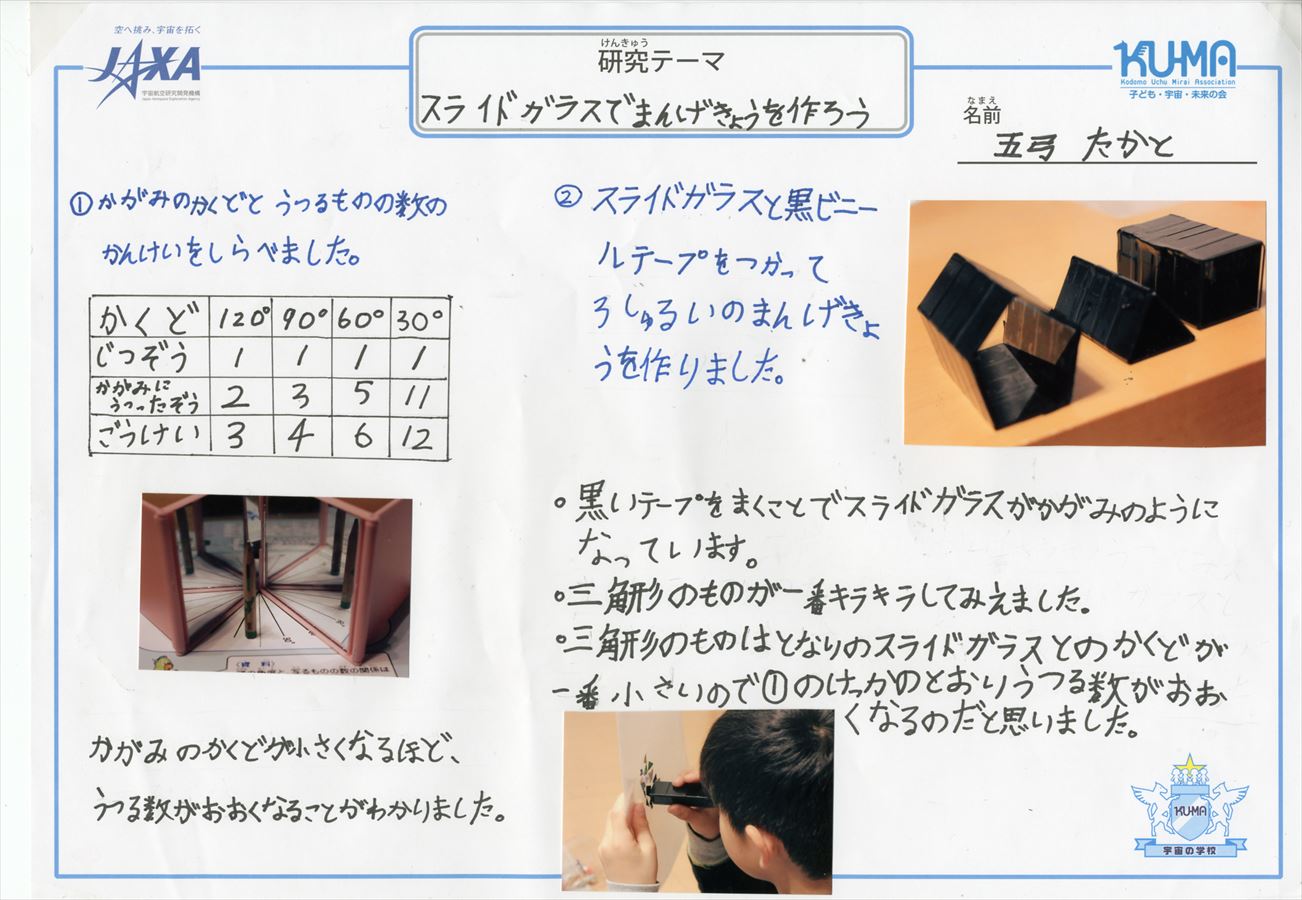 空へ挑み、宇宙を拓く
JAXA
宇宙航空研究開発機構
Japan Aerospace Exploration Agency
けんきゅう
研究テーマ
スライドガラスでまんげきょうを作ろう
KU-MA
Kodomo Uchu Mirai Association
子ども・宇宙・未来の会
なまえ
名前
五弓 たかと
①かがみのかくどと うつるものの数の
かんけいをしらべました。
かくど 120° 90° 60° 30°
じつぞう 1 1 1 1
かがみに
うつったぞう 2 3 5 11
ごうけい 3 4 6 12
(資料)
かがみのかくどが小さくなるほど、
うつる数がおおくなることがわかりました。
② スライドガラスと黒ビニー
ルテープをつかって
3しゅるいのまんげきょ
うを作りました。
○黒いテープをまくことでスライドガラスがかがみのように
なっています。
○三角形のものが一番キラキラしてみえました。
○三角形のものはとなりのスライドガラスとのかくどが
一番小さいので①のけっかのとおりうつる数がおお
くなるのだと思いました。
KU-MA
宇宙の学校